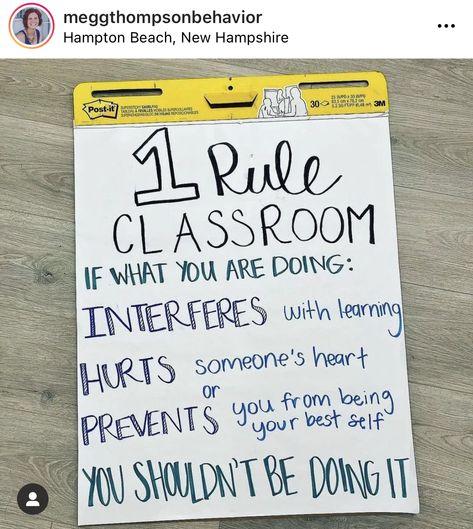 meggthompsonbehavior
Hampton Beach, New Hampshire
Post-it
30
3M
1 Rule
CLASSROOM
IF WHAT YOU ARE DOING:
INTERFERES with learning
HURTS someone's heart
or
PREVENTS you from being
your best self
YOU SHOULDN'T BE DOING IT